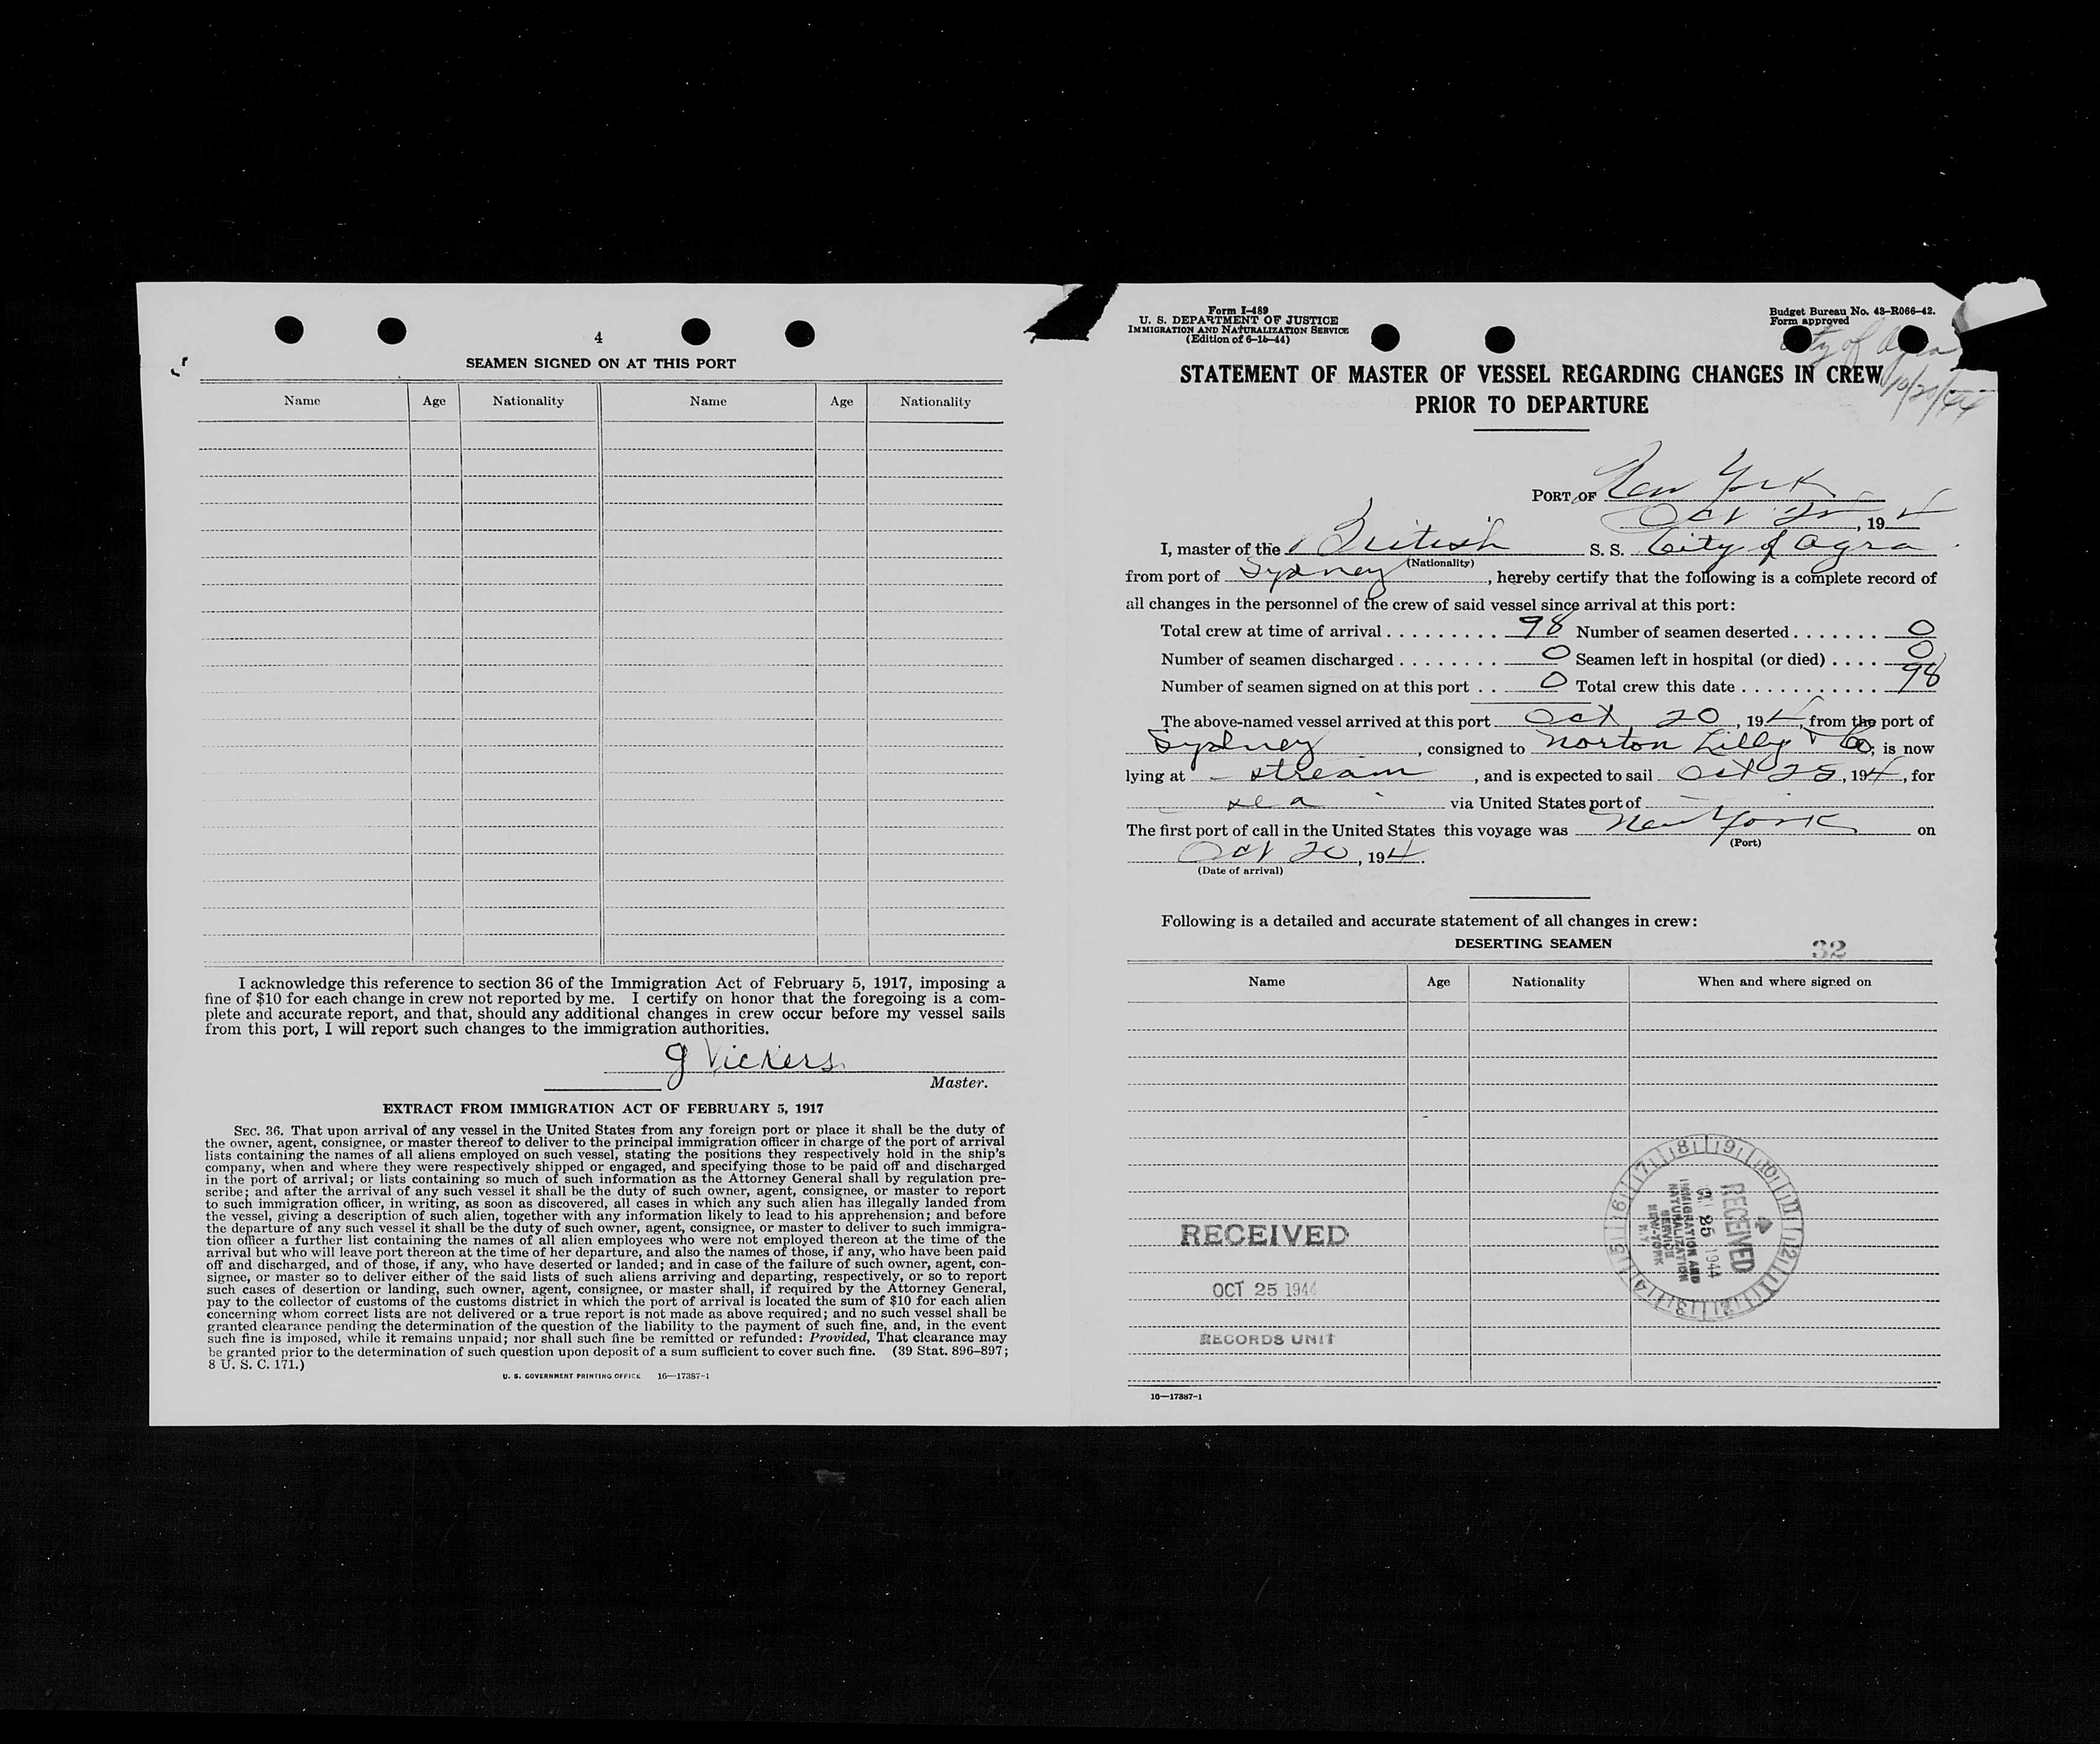 4
SEAMEN SIGNED ON AT THIS PORT
Name Age Nationality Name Age Nationality
I acknowledge this reference to section 36 of the Immigration Act of February 5, 1917, imposing a
fine of $10 for each change in crew not reported by me. I certify on honor that the foregoing is a com-
plete and accurate report, and that, should any additional changes in crew occur before my vessel sails
from this port, I will report such changes to the immigration authorities.
J Vickers
Master.
EXTRACT FROM IMMIGRATION ACT OF FEBRUARY 5, 1917
SEC. 36. That upon arrival of any vessel in the United States from any foreign port or place it shall be the duty of
the owner, agent, consignee, or master thereof to deliver to the principal immigration officer in charge of the port of arrival
lists containing the names of all aliens employed on such vessel, stating the positions they respectively hold in the ship's
company, when and where they were respectively shipped or engaged, and specifying those to be paid off and discharged
in the port of arrival; or lists containing so much of such information as the Attorney General shall by regulation pre-
scribe; and after the arrival of any such vessel it shall be the duty of such owner, agent, consignee, or master to report
to such immigration officer, in writing, as soon as discovered, all cases in which any such alien has illegally landed from
the vessel, giving a description of such alien, together with any information likely to lead to his apprehension; and before
the departure of any such vessel it shall be the duty of such owner, agent, consignee, or master to deliver to such immigra-
tion officer a further list containing the names of all alien employees who were not employed thereon at the time of the
arrival but who will leave port thereon at the time of her departure, and also the names of those, if any, who have been paid
off and discharged, and of those, if any, who have deserted or landed; and in case of the failure of such owner, agent, con-
signee, or master so to deliver either of the said lists of such aliens arriving and departing, respectively, or so to report
such cases of desertion or landing, such owner, agent, consignee, or master shall, if required by the Attorney General,
pay to the collector of customs of the customs district in which the port of arrival is located the sum of $10 for each alien
concerning whom correct lists are not delivered or a true report is not made as above required; and no such vessel shall be
granted clearance pending the determination of the question of the liability to the payment of such fine, and, in the event
such fine is imposed, while it remains unpaid; nor shall such fine be remitted or refunded: Provided, That clearance may
be granted prior to the determination of such question upon deposit of a sum sufficient to cover such fine. (39 Stat. 896–897;
8 U. S. C. 171.)
U. S. GOVERNMENT PRINTING OFFICE 16—17387-1
Form I-489
U. S. DEPARTMENT OF JUSTICE
IMMIGRATION AND NATURALIZATION SERVICE
(Edition of 6-15-44)
Budget Bureau No. 43-R066-42.
Form approved
City of Agra
10/20/44
STATEMENT OF MASTER OF VESSEL REGARDING CHANGES IN CREW
PRIOR TO DEPARTURE
PORT OF New York
Oct 25, 194
I, master of the British S. S. City of Agra
(Nationality)
from port of Sydney, hereby certify that the following is a complete record of
all changes in the personnel of the crew of said vessel since arrival at this port:
Total crew at time of arrival 98 Number of seamen deserted 0
Number of seamen discharged 0 Seamen left in hospital (or died) 0
Number of seamen signed on at this port 0 Total crew this date 98
The above-named vessel arrived at this port Oct 20, 194, from the port of
Sydney, consigned to Norton Lilly & Co, is now
lying at stream, and is expected to sail Oct 25, 194, for
sea via United States port of
The first port of call in the United States this voyage was New York on
(Port)
Oct 20, 194.
(Date of arrival)
Following is a detailed and accurate statement of all changes in crew:
DESERTING SEAMEN
32
Name Age Nationality When and where signed on
RECEIVED
OCT 25 1944
RECORDS UNIT
6 7 8 9 10 11 12 1 2 3 4 5
RECEIVED
OCT 25 1944
IMMIGRATION AND
NATURALIZATION
SERVICE
NEW-YORK
N.Y.
16—17387-1